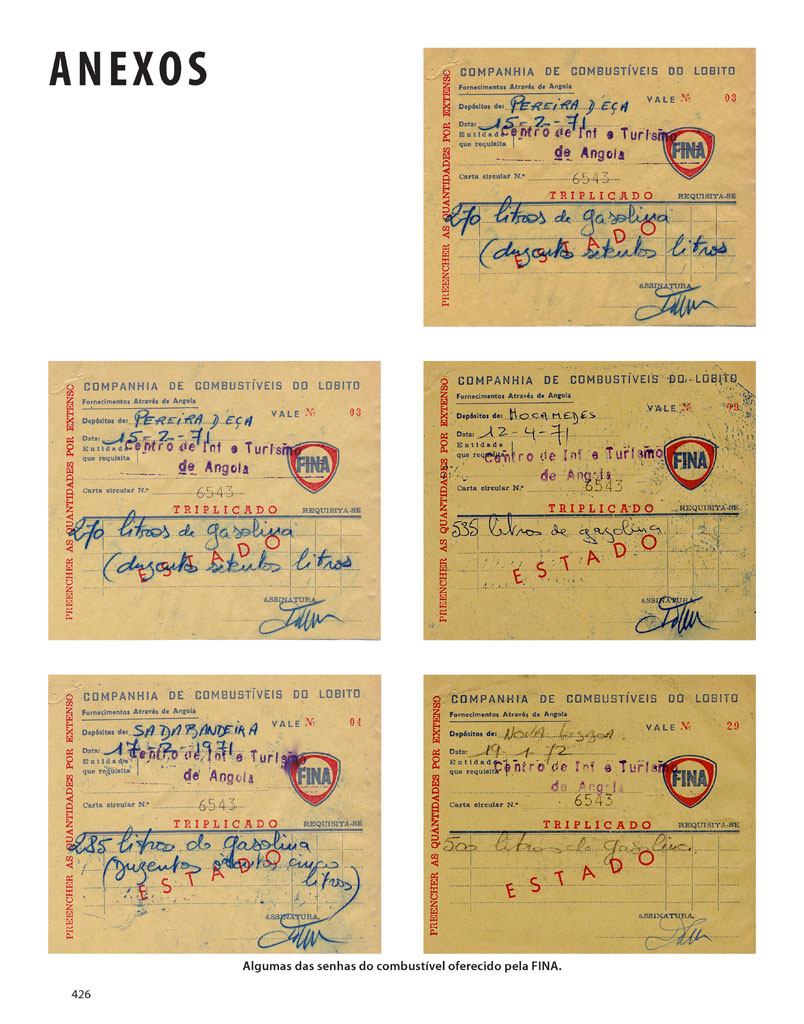 ANEXOS
PREENCHER AS QUANTIDADES POR EXTENSO
COMPANHIA DE COMBUSTÍVEIS DO LOBITO
Fornecimentos Através de Angola
VALE Nº 03
Depósitos de: PEREIRA D'EÇA
Data: 15-2-71
Entidade que requisita
Centro de Inf e Turismo
de Angola
FINA
Carta circular N.º 6543
TRIPLICADO
REQUISITA-SE
270 litros de gasolina
(duzentos setenta litros
ESTADO
ASSINATURA
PREENCHER AS QUANTIDADES POR EXTENSO
COMPANHIA DE COMBUSTÍVEIS DO LOBITO
Fornecimentos Através de Angola
VALE Nº 03
Depósitos de: PEREIRA D'EÇA
Data: 15-2-71
Entidade que requisita
Centro de Inf e Turismo
de Angola
FINA
Carta circular N.º 6543
TRIPLICADO
REQUISITA-SE
270 litros de gasolina
(duzentos setenta litros
ESTADO
ASSINATURA
PREENCHER AS QUANTIDADES POR EXTENSO
COMPANHIA DE COMBUSTÍVEIS DO LOBITO
Fornecimentos Através de Angola
VALE Nº
Depósitos de: MOÇAMEDES
Data: 12-4-71
Entidade que requisita
Centro de Inf e Turismo
de Angola
FINA
Carta circular N.º 6543
TRIPLICADO
REQUISITA-SE
535 litros de gazolina
ESTADO
ASSINATURA
PREENCHER AS QUANTIDADES POR EXTENSO
COMPANHIA DE COMBUSTÍVEIS DO LOBITO
Fornecimentos Através de Angola
VALE Nº 04
Depósitos de: SA DA BANDEIRA
Data: 17-2-1971
Entidade que requisita
Centro de Inf e Turismo
de Angola
FINA
Carta circular N.º 6543
TRIPLICADO
REQUISITA-SE
285 litros de gasolina
(duzentos oitenta cinco
litros)
ESTADO
ASSINATURA
PREENCHER AS QUANTIDADES POR EXTENSO
COMPANHIA DE COMBUSTÍVEIS DO LOBITO
Fornecimentos Através de Angola
VALE Nº 29
Depósitos de: NOVA LISBOA
Data: 19-1-72
Entidade que requisita
Centro de Inf e Turismo
de Angola
FINA
Carta circular N.º 6543
TRIPLICADO
REQUISITA-SE
500 litros de gasolina
ESTADO
ASSINATURA
Algumas das senhas do combustível oferecido pela FINA.
426